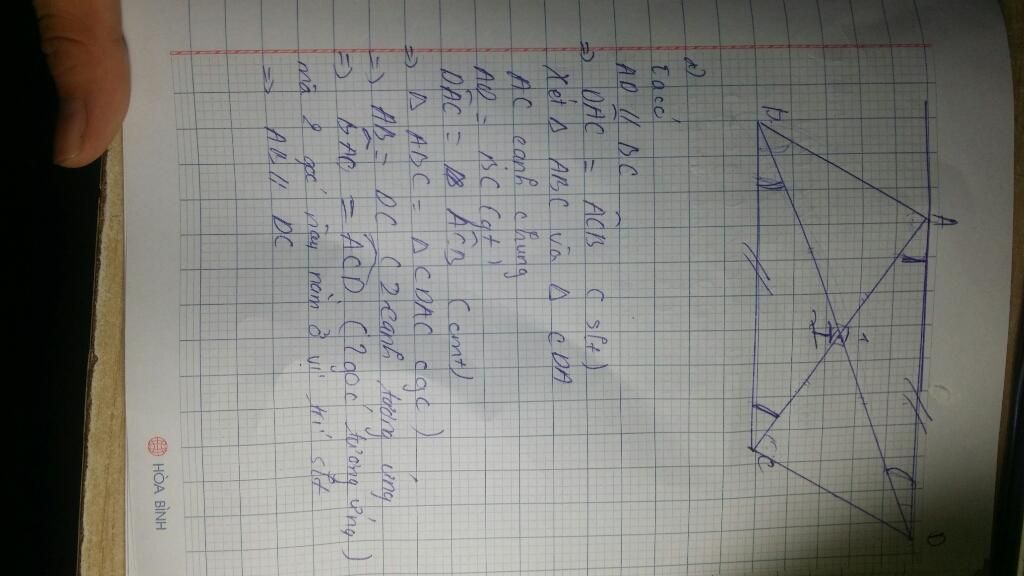 A
D
I
1
B
C
a)
Ta có
AD // BC
=> DAC = ACB ( slt)
Xét Δ ABC và Δ CDA
AC cạnh chung
AD = BC (gt)
DAC = ACB ( cmt)
=> Δ ABC = Δ CDA( cgc)
=> AB = DC ( 2 cạnh tương ứng
=> BAC = ACD ( 2 góc tương ứng )
mà 2 góc này nằm ở vị trí slt
=> AB // DC
HÒA BÌNH